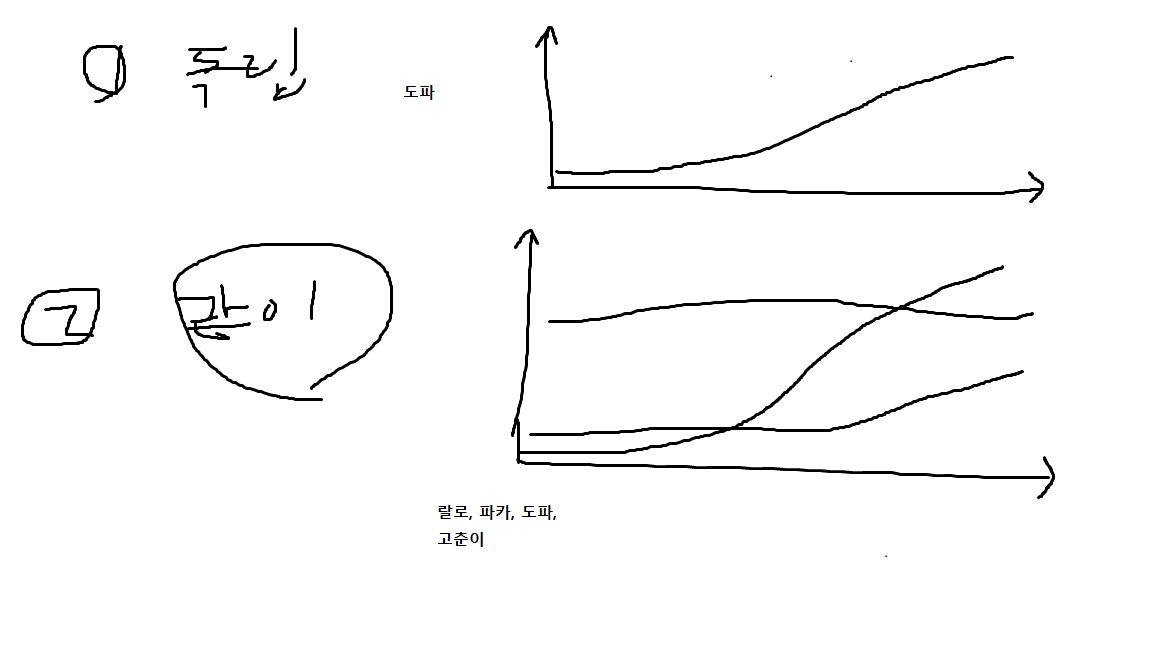 1 독립
도파
2 같이
랄로, 파카, 도파,
고춘이